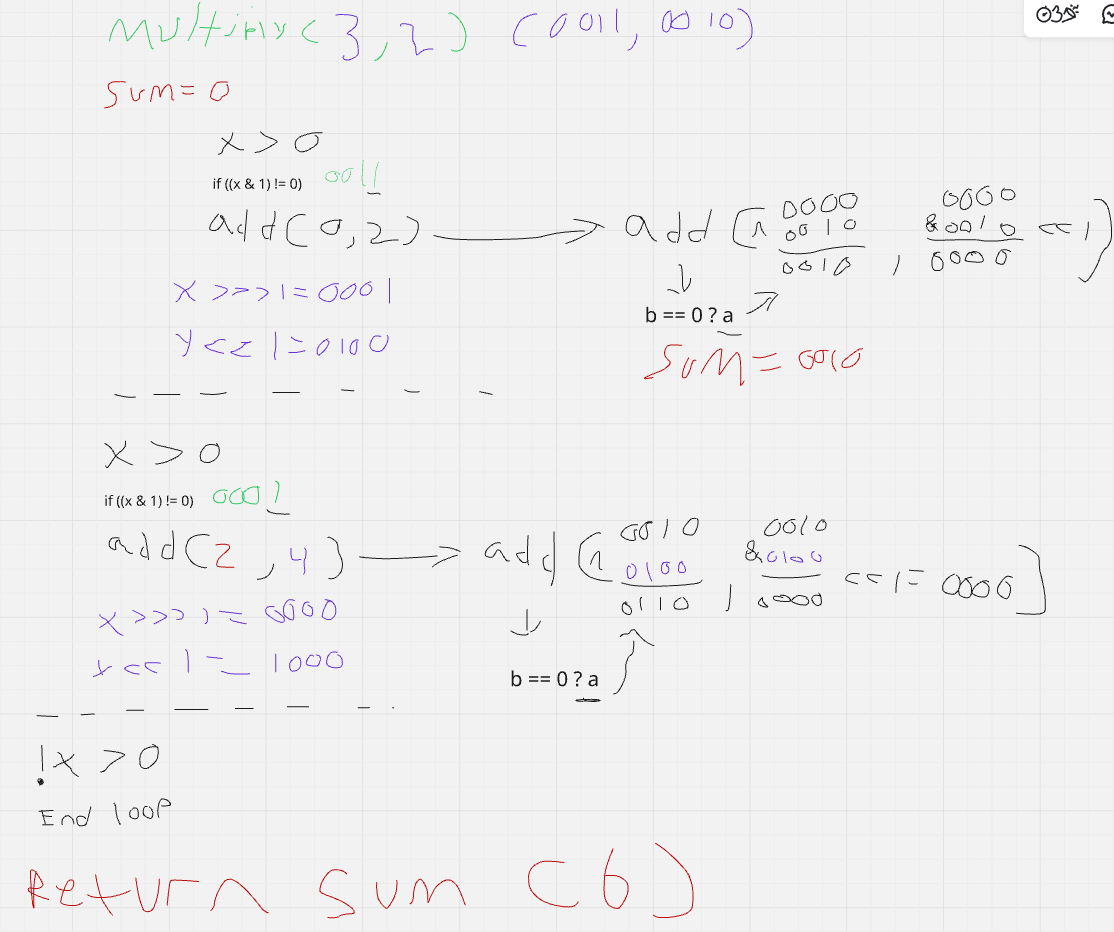 multiply(3,2) (0011, 0010)
sum=0
x > 0
if ((x & 1) != 0) 0011
add(0,2) → add(^ 0000 0010 0010 , 0000 &0010 0000 <<1)
x >>> 1 = 0001
↓
b == 0 ? a
y << 1 = 0100
sum = 0010
x > 0
if ((x & 1) != 0) 0001
add(2,4) → add(^ 0010 0100 0110 , 0010 &0100 0000 <<1 = 0000)
x >>> 1 = 0000
↓
<< 1 = 1000
b == 0 ? a
!x > 0
End loop
Return sum (6)